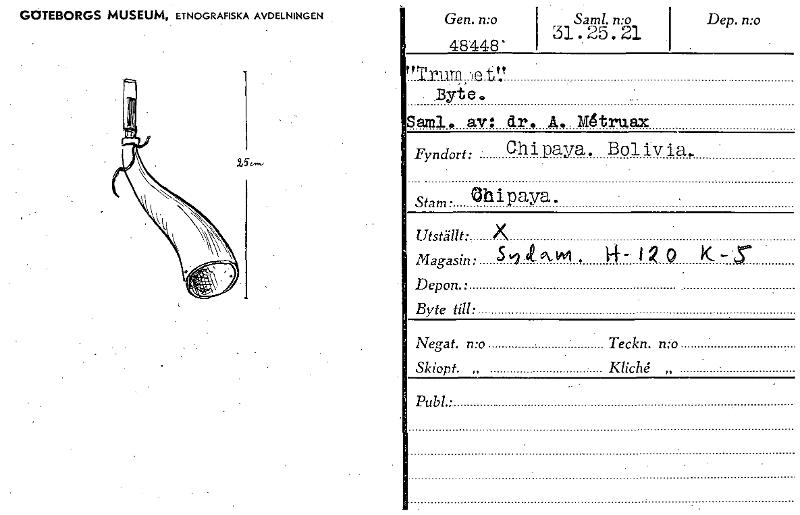 GÖTEBORGS MUSEUM, ETNOGRAFISKA AVDELNINGEN
25 cm
Gen. n:o Saml. n:o Dep. n:o
48448 31.25.21
"Trumpet"
Byte.
Saml. av: dr. A. Métruax
Fyndort: Chipaya. Bolivia.
Stam: Chipaya.
Utställt: X
Magasin: Sydam. H-120 K-5
Depon.:
Byte till:
Negat. n:o Teckn. n:o
Skiopt. „ Kliché „
Publ.: